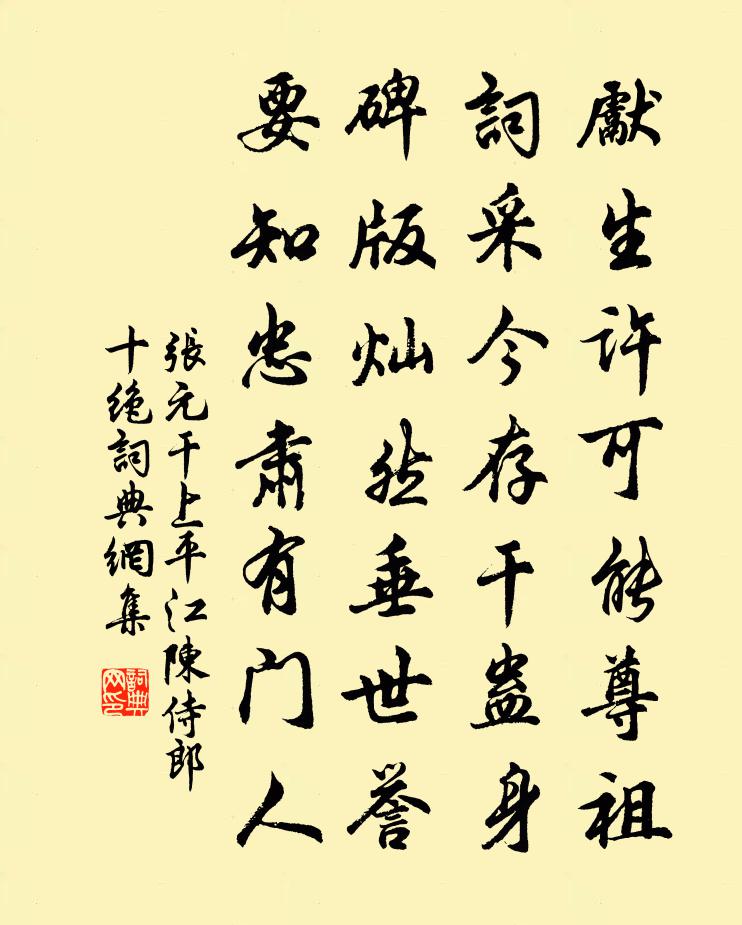 獻生許可能尊祖
詞采今存干蠱身
碑版灿然垂世譽
要知忠肅有門人
張元干上平江陳侍郎
十绝詞典網集
詞典
网印